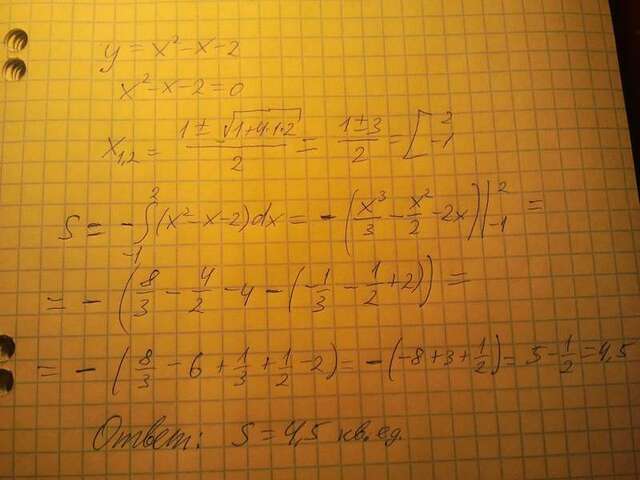 y = x² - x - 2
x² - x - 2 = 0
x₁,₂ = (1 ± √(1+4·1·2))/2 = (1±3)/2 = [2 -1
S = -∫₋₁² (x² - x - 2)dx = -(x³/3 - x²/2 - 2x)|₋₁² =
= -(8/3 - 4/2 - 4 - (-1/3 - 1/2 + 2)) =
= -(8/3 - 6 + 1/3 + 1/2 - 2) = -(-8 + 3 + 1/2) = 5 - 1/2 = 4,5
Ответ: S = 4,5 кв.ед.